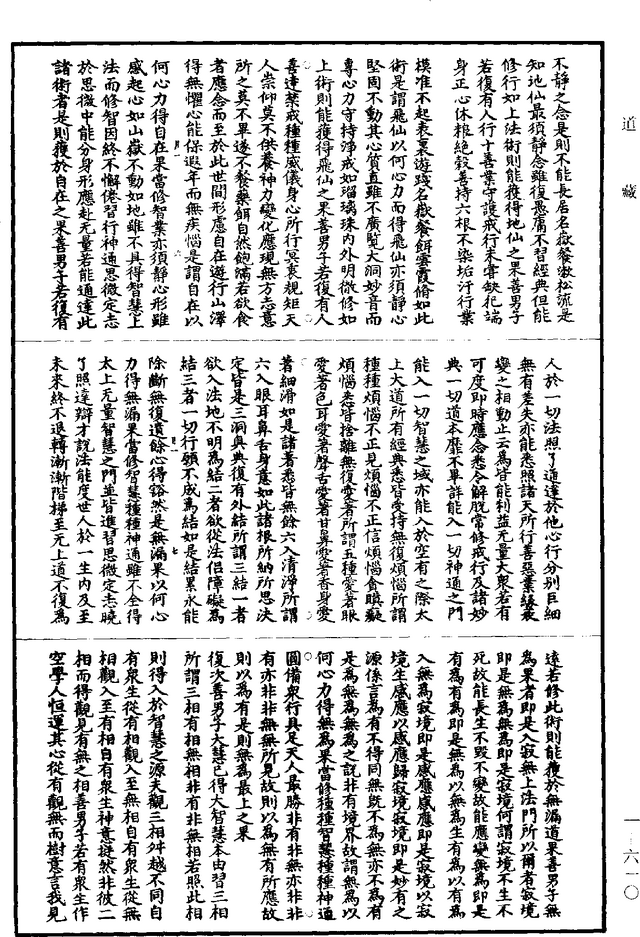 道藏
不靜之念是則不能長居名嶽餐漱松流是
知地仙最須靜念雖復愚庸不習經典但能
修行如上法術則能獲得地仙之果善男子
若復有人行十善業守護戒行未嘗缺犯端
身正心休粮絕穀善持六根不染垢汙行業
模准不起表裏遊踐名嶽餐餌雲霞脩如此
術是謂飛仙以何心力而得飛仙亦須靜心
堅固不動其心質直雖不廣覧大洞妙音而
專心力守持淨戒如瑠璃珠内外明徹修如
上術則能獲得飛仙之果善男子若復有人
善達禁戒種種威儀身心所行冥衷規矩天
人崇仰莫不供養神力變化應現無方志意
所之莫不畢遂不餐藥餌自然飽滿若欲食
者應念而至於此世間形慮自在遊行山澤
得無懼心能保遐年而無疾惱是謂自在以
何心力得自在果當修智業亦須靜心形雖
感起心如山嶽不動如地雖不具得智慧上
法而修智因終不懈倦習行神通思微定志
於思微中能分身形應赴无量若能通達此
諸術者是則獲於自在之果善男子若復有
人於一切法照了通達於他心行分別巨細
無有差失亦能悉照諸天所行善惡業緣衰
變之相動止云為皆能利益无量大衆若有
可度即時應念悉令解脫常修戒行及諸妙
典一切道本靡不畢詳能入一切神通之門
能入一切智慧之域亦能入於空有之際太
上大道所有經典悉皆受持無復煩惱所謂
種種煩惱不正見煩惱不正信煩惱貪瞋癡
煩惱悉皆捨離無復愛著所謂五種愛著眼
愛著色耳愛著聲舌愛著甘鼻愛著香身愛
著細滑如是諸著悉皆無餘六入清淨所謂
六入眼耳鼻舌身意如此諸根所納所思決
定皆是三洞奧典復有外結所謂三結一者
欲入法地不明為結二者欲從法侣障礙為
結三者一切行願不成為結如是結累永能
除斷無復遺餘心得豁然是無漏果以何心
力得無漏果當修智慧種種神通雖不全得
太上无量智慧之門並皆進習思微定志曉
了照達辯才說法能度世人於一生内及至
未來終不退轉漸漸階梯至无上道不復為
遠若修此術則能獲於無漏道果善男子無
為果者即是入寂無上法門所以爾者寂境
即是無為無為即是寂境何謂寂境不生不
死故能長生不毀不變故能應變無為即是
有為有為即是無為以無為生有為以有為
入無為寂境即是感應感應即是寂境以寂
境生感應以感應歸寂境寂境即是妙有之
源係言為有不得同無既不為無亦不為有
是為無為無為之說非有境界故謂無為以
何心力得無為果當修種種智慧種種神通
圓備衆行具足天人最勝非有非無亦非非
有亦非非無無所見故則以為無有所應故
則以為有是則無為最上之果
復次善男子大慧已得大智慧本由習三相
所謂三相有相無相非有非無相若照此相
則得入於智慧之源夫觀三相舛越不同自
有衆生從有相觀入至無相自有衆生從無
相觀入至有相自有衆生神意㨗然非彼二
相而得觀見有無之相善男子若有衆生作
空學人恒運其心從有觀無而樹意言我見
一—六一〇